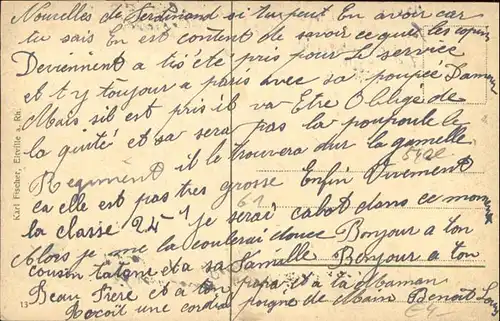 Nouvelles de Ferdinand si tu peut En avoir car
tu sais En est content de savoir ce que les copins
Deviennent a t'is été pris pour le service
et t'y toujour a paris avec sa poupée
Mais s'il est pris il va Etre Obligé de
la quité et sa sera pas la poupoule le
Regiment il le trouvera dur la gamelle
ca elle est pas tres grosse Enfin Vivement
la classe 25 je serai cabot dans ce moment
Alors je me la coulerai douce Bonjour a ton
cousin et a sa Famille Bonjour a ton
Beau Frère et a ton papa et a ta Maman
Recoit une cordial poigne de Main Benoit
Karl Fischer, Eltville a. Rh.
13
61